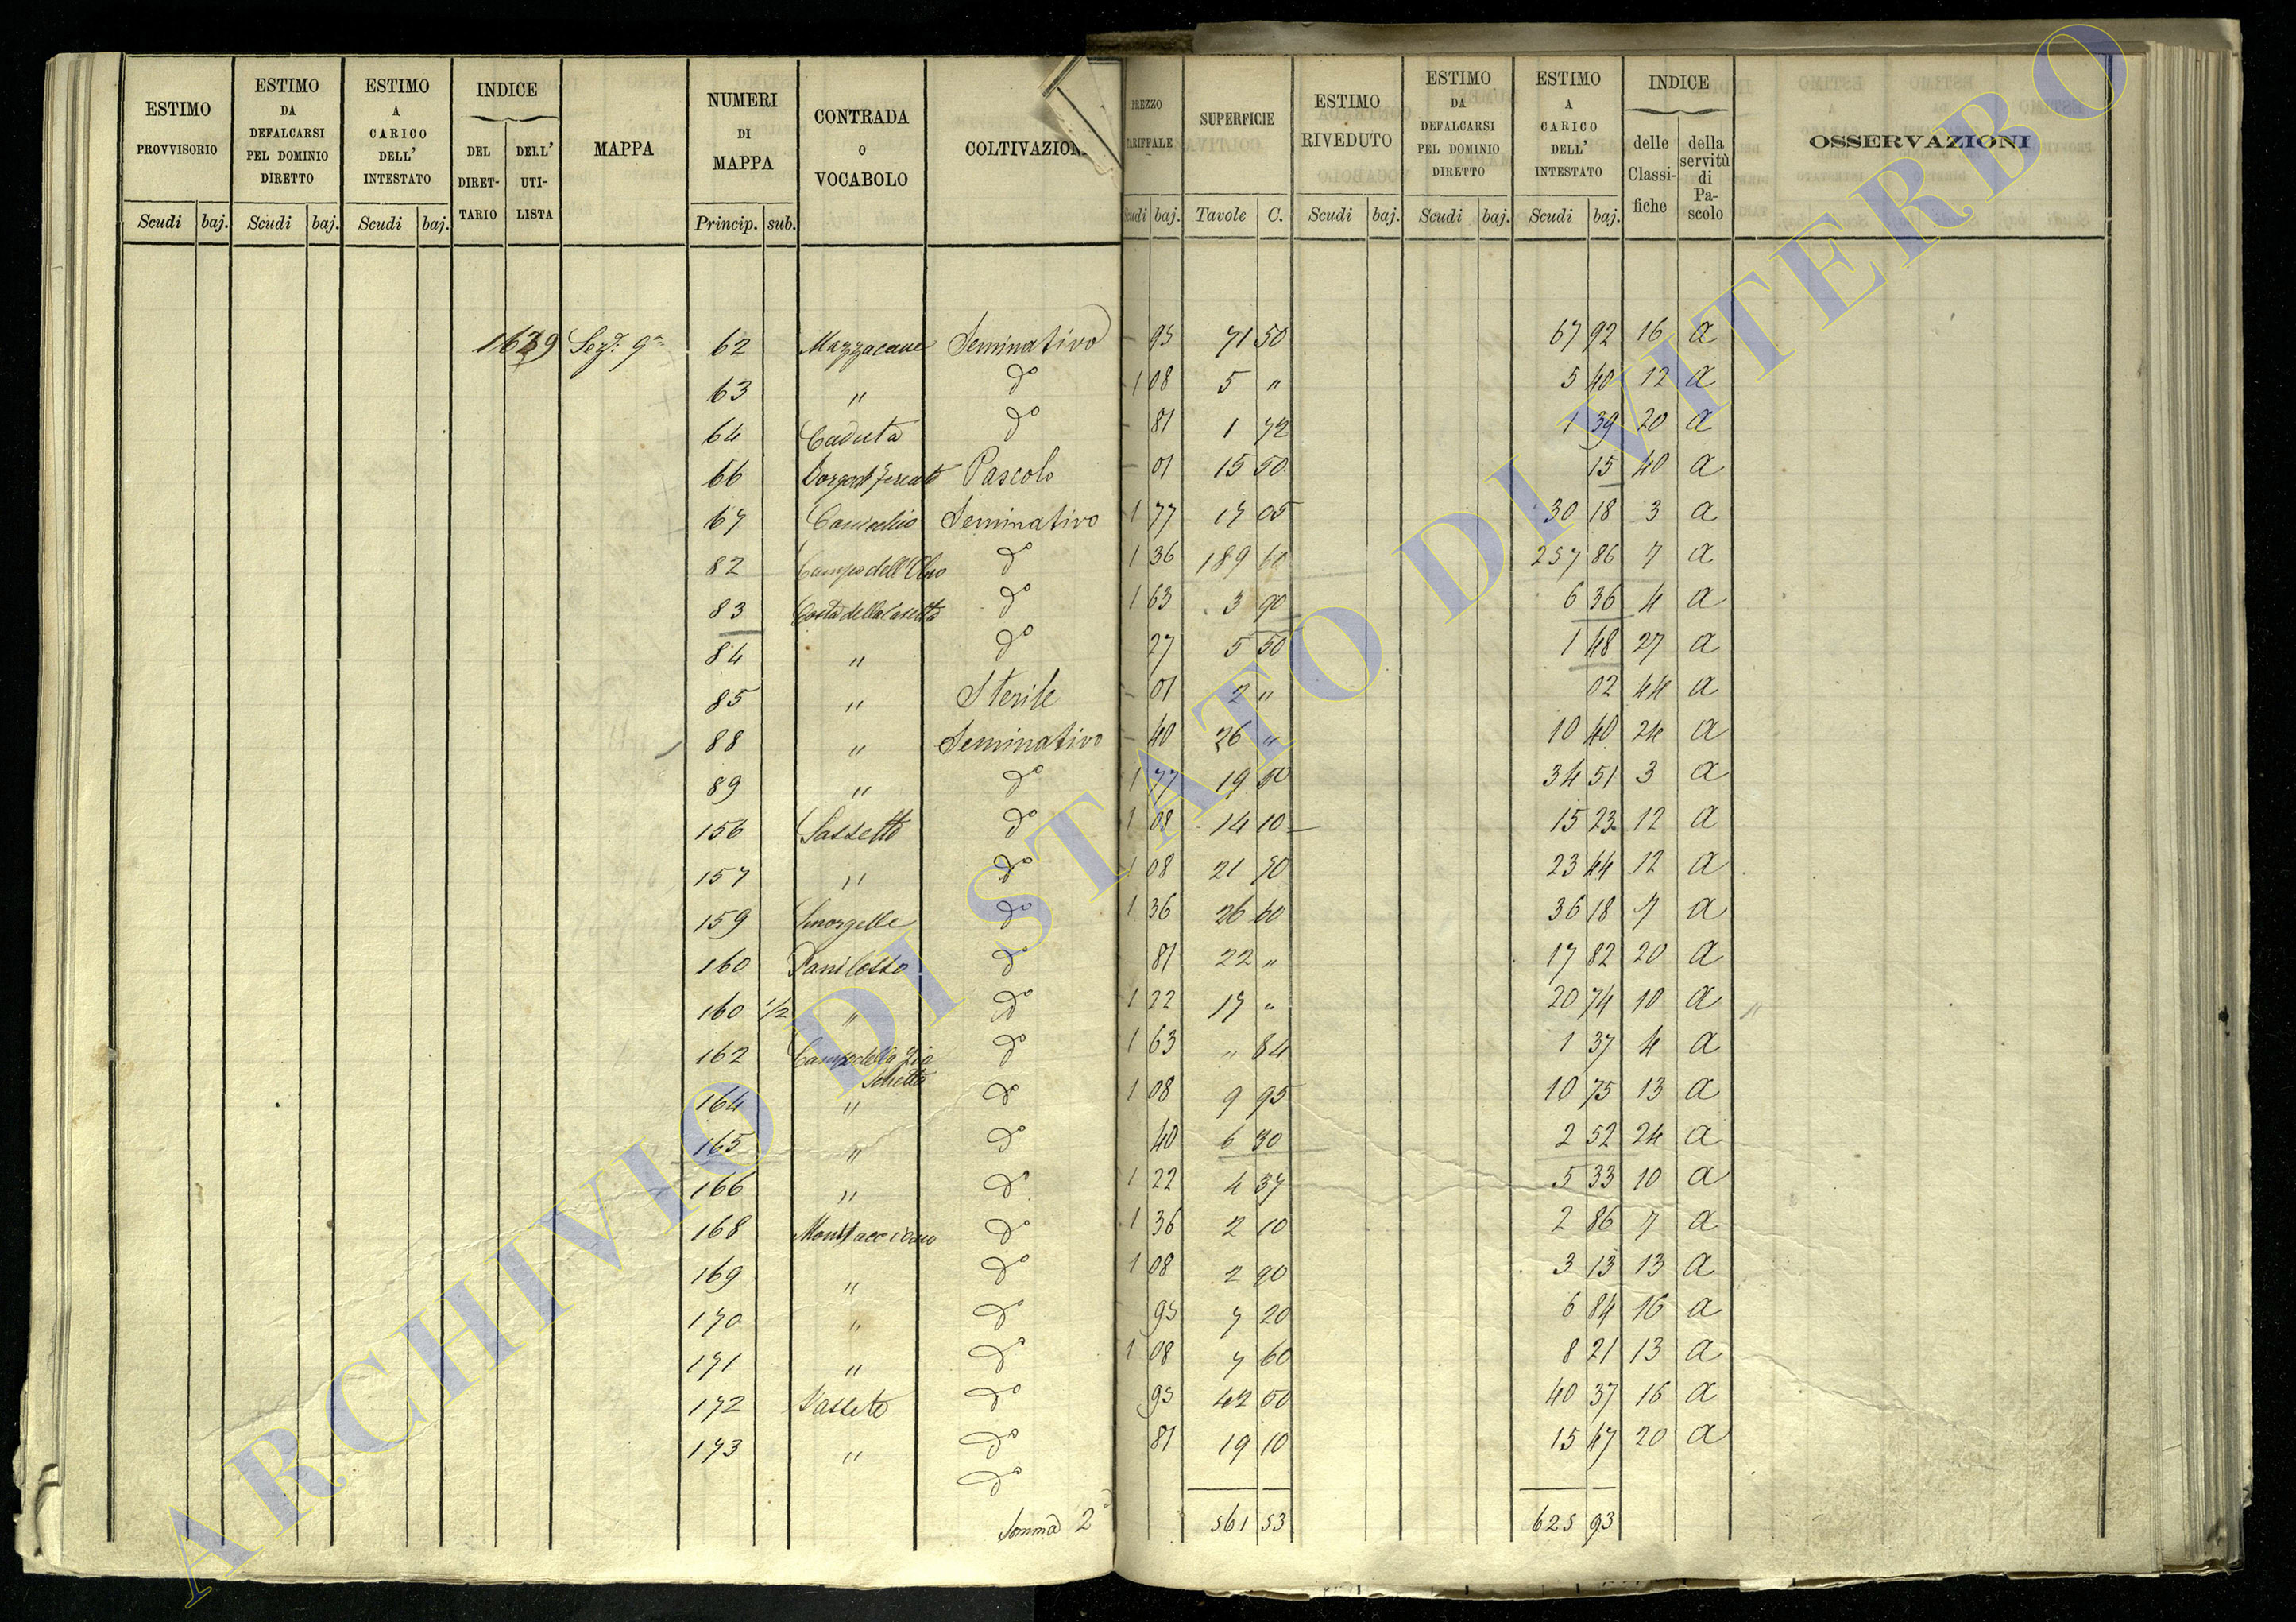 ESTIMO PROVVISORIO Scudi baj.
ESTIMO DA DEFALCARSI PEL DOMINIO DIRETTO Scudi baj.
ESTIMO A CARICO DELL' INTESTATO Scudi baj.
INDICE DEL DIRET- TARIO DELL' UTI- LISTA
MAPPA
NUMERI DI MAPPA Princip. sub.
CONTRADA O VOCABOLO
COLTIVAZION
PREZZO TARIFFALE Scudi baj.
SUPERFICIE Tavole C.
ESTIMO RIVEDUTO Scudi baj.
ESTIMO DA DEFALCARSI PEL DOMINIO DIRETTO Scudi baj.
ESTIMO A CARICO DELL' INTESTATO Scudi baj.
INDICE delle Classi- fiche della servitù di Pa- scolo
OSSERVAZIONI
Sez.e 9a 62 Mazzacane Seminativo – 95 71 50 67 92 16 a
63 " do 1 08 5 " 5 40 12 a
64 Caduta do – 81 1 72 1 39 20 a
66 Pascolo – 01 15 50 15 40 a
67 Seminativo 1 77 17 05 30 18 3 a
82 Campo dell'Olmo do 1 36 189 60 257 86 7 a
83 Costa della Casetta do 1 63 3 90 6 36 4 a
84 " do 27 5 50 1 48 27 a
85 " Sterile – 01 2 " 02 44 a
88 " Seminativo – 40 26 " 10 40 24 a
89 " do 1 77 19 50 34 51 3 a
156 Sassetto do 1 08 14 10 15 23 12 a
157 " do 1 08 21 70 23 44 12 a
159 Smorgelle do 1 36 26 60 36 18 7 a
160 do 81 22 " 17 82 20 a
160 1/2 " do 1 22 17 " 20 74 10 a
162 Campo della Zia do 1 63 " 84 1 37 4 a
164 " do 1 08 9 95 10 75 13 a
165 " do 40 6 30 2 52 24 a
166 " do 1 22 4 37 5 33 10 a
168 do 1 36 2 10 2 86 7 a
169 " do 1 08 2 90 3 13 13 a
170 " do 95 7 20 6 84 16 a
171 " do 1 08 7 60 8 21 13 a
172 Sasseto do 95 42 50 40 37 16 a
173 " do 81 19 10 15 47 20 a
do
Somma 2a 561 53 625 93
ARCHIVIO DI STATO DI VITERBO